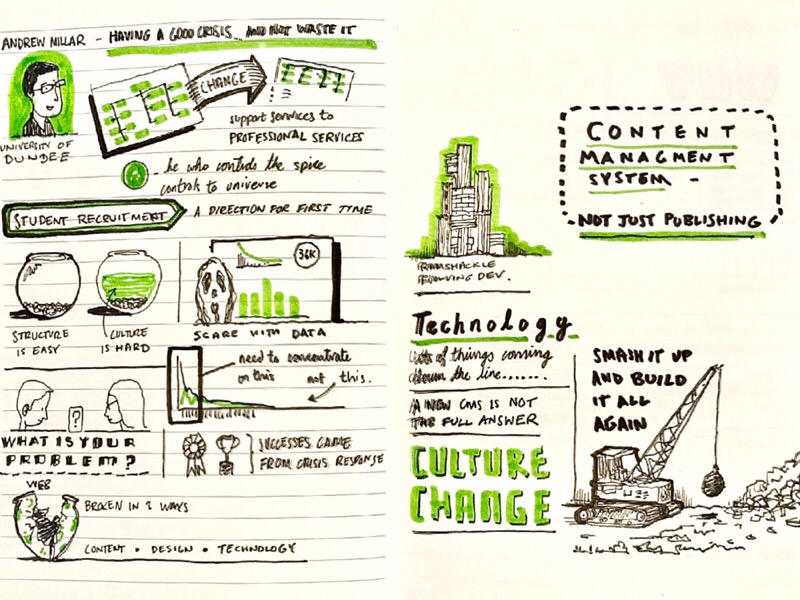 ANDREW MILLAR - HAVING A GOOD CRISIS... AND NOT WASTE IT
UNIVERSITY OF
DUNDEE
CHANGE
support services to
PROFESSIONAL SERVICES
- he who controls the spice
controls to universe
STUDENT RECRUITMENT
A DIRECTION FOR FIRST TIME
STRUCTURE
IS EASY
CULTURE
IS HARD
36K
SCARE WITH DATA
need to concentrate
on this
not this.
?
WHAT IS YOUR
PROBLEM?
SUCCESSES CAME
FROM CRISIS RESPONSE
WEB
BROKEN IN 3 WAYS
CONTENT • DESIGN • TECHNOLOGY
CONTENT
MANAGMENT
SYSTEM -
NOT JUST PUBLISHING
DEV.
Technology
Lots of things coming
down the line.......
A NEW CMS IS NOT
THE FULL ANSWER
CULTURE
CHANGE
SMASH IT UP
AND BUILD
IT ALL
AGAIN